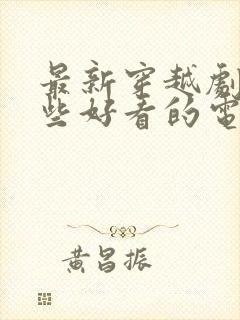 最新穿越劇
些好看的電
黃昌振